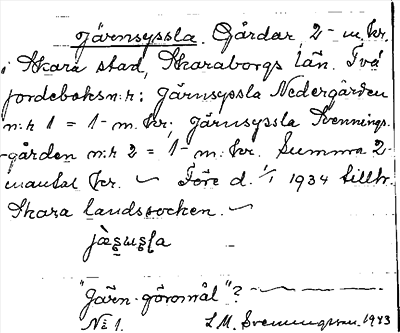 Järnsyssla. Gårdar 2-m. kr.
i Skara stad, Skaraborgs län. Två
jordeboksn:r: Järnsyssla Nedergården
n:r 1 = 1- m. kr; Järnsyssla Svennings-
-gården n:r 2 = 1- m. kr. Summa 2-
mantal kr. — Före d. 1/1 1934 tillh.
Skara landssocken. —
"Järn-göromål"? —
No 1. L. M. Svenungsson. 1943